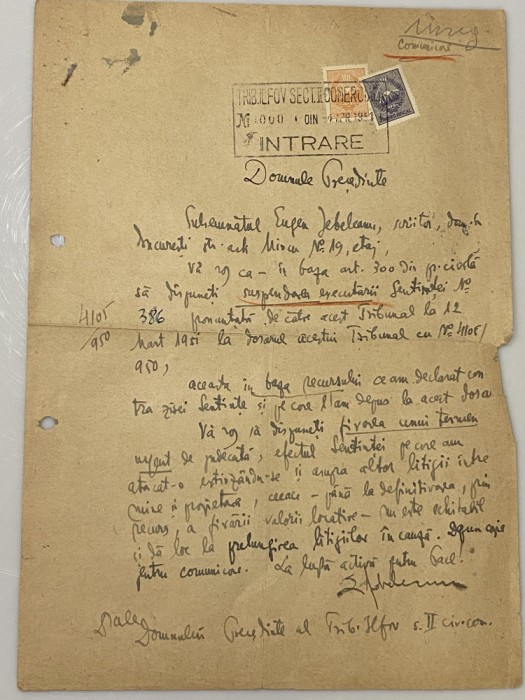 Urg.
comunicare
TRIB. ILFOV SECT. II COMERCIALA
No 4000 DIN APR. 1951
INTRARE
Domnule Președinte
Subsemnatul Eugen Jebeleanu, scriitor, dom. în
București str. arh. Mincu No. 19, etaj,
Vă rog ca - în baza art. 300 din pr. civilă
să dispuneți suspendarea executării Sentinței No
4105/950
386 pronunțată de către acest Tribunal la 12
Mart 1951 la dosarul acestui Tribunal cu No. 4105/
950,
aceasta în baza recursului ce am declarat con
tra zisei Sentințe și pe care l-am depus la acest dosar
Vă rog să dispuneți fixarea unui termen
urgent de judecată, efectul Sentinței pe care am
atacat-o extinzându-se și asupra altor litigii între
mine și proprietara, ceeace - până la definitivarea, prin
recurs, a fixării valorii locative - nu este echitabil
și dă loc la prelungirea litigiilor în cauză. Depun copie
pentru comunicare. La luptă activă pentru Pace!
Dsale
Domnului Președinte al Trib. Ilfov s. II civ-com.